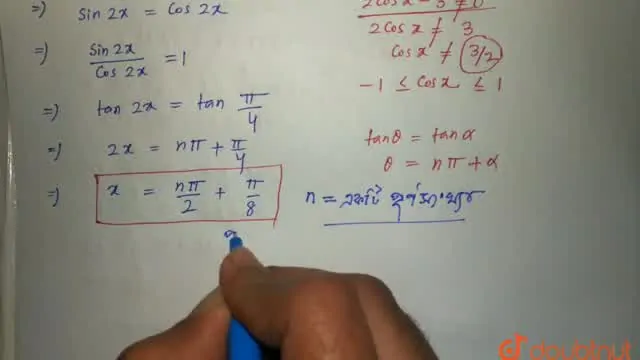 ⇒) Sin 2x = Cos 2x
⇒) Sin 2x / Cos 2x = 1
⇒) tan 2x = tan π/4
⇒) 2x = nπ + π/4
⇒) x = nπ/2 + π/8
2Cosx - 3 ≠ 0
2Cosx ≠ 3
Cosx ≠ 3/2
-1 ≤ Cosx ≤ 1
tanθ = tanα
θ = nπ + α
n =
doubtnut